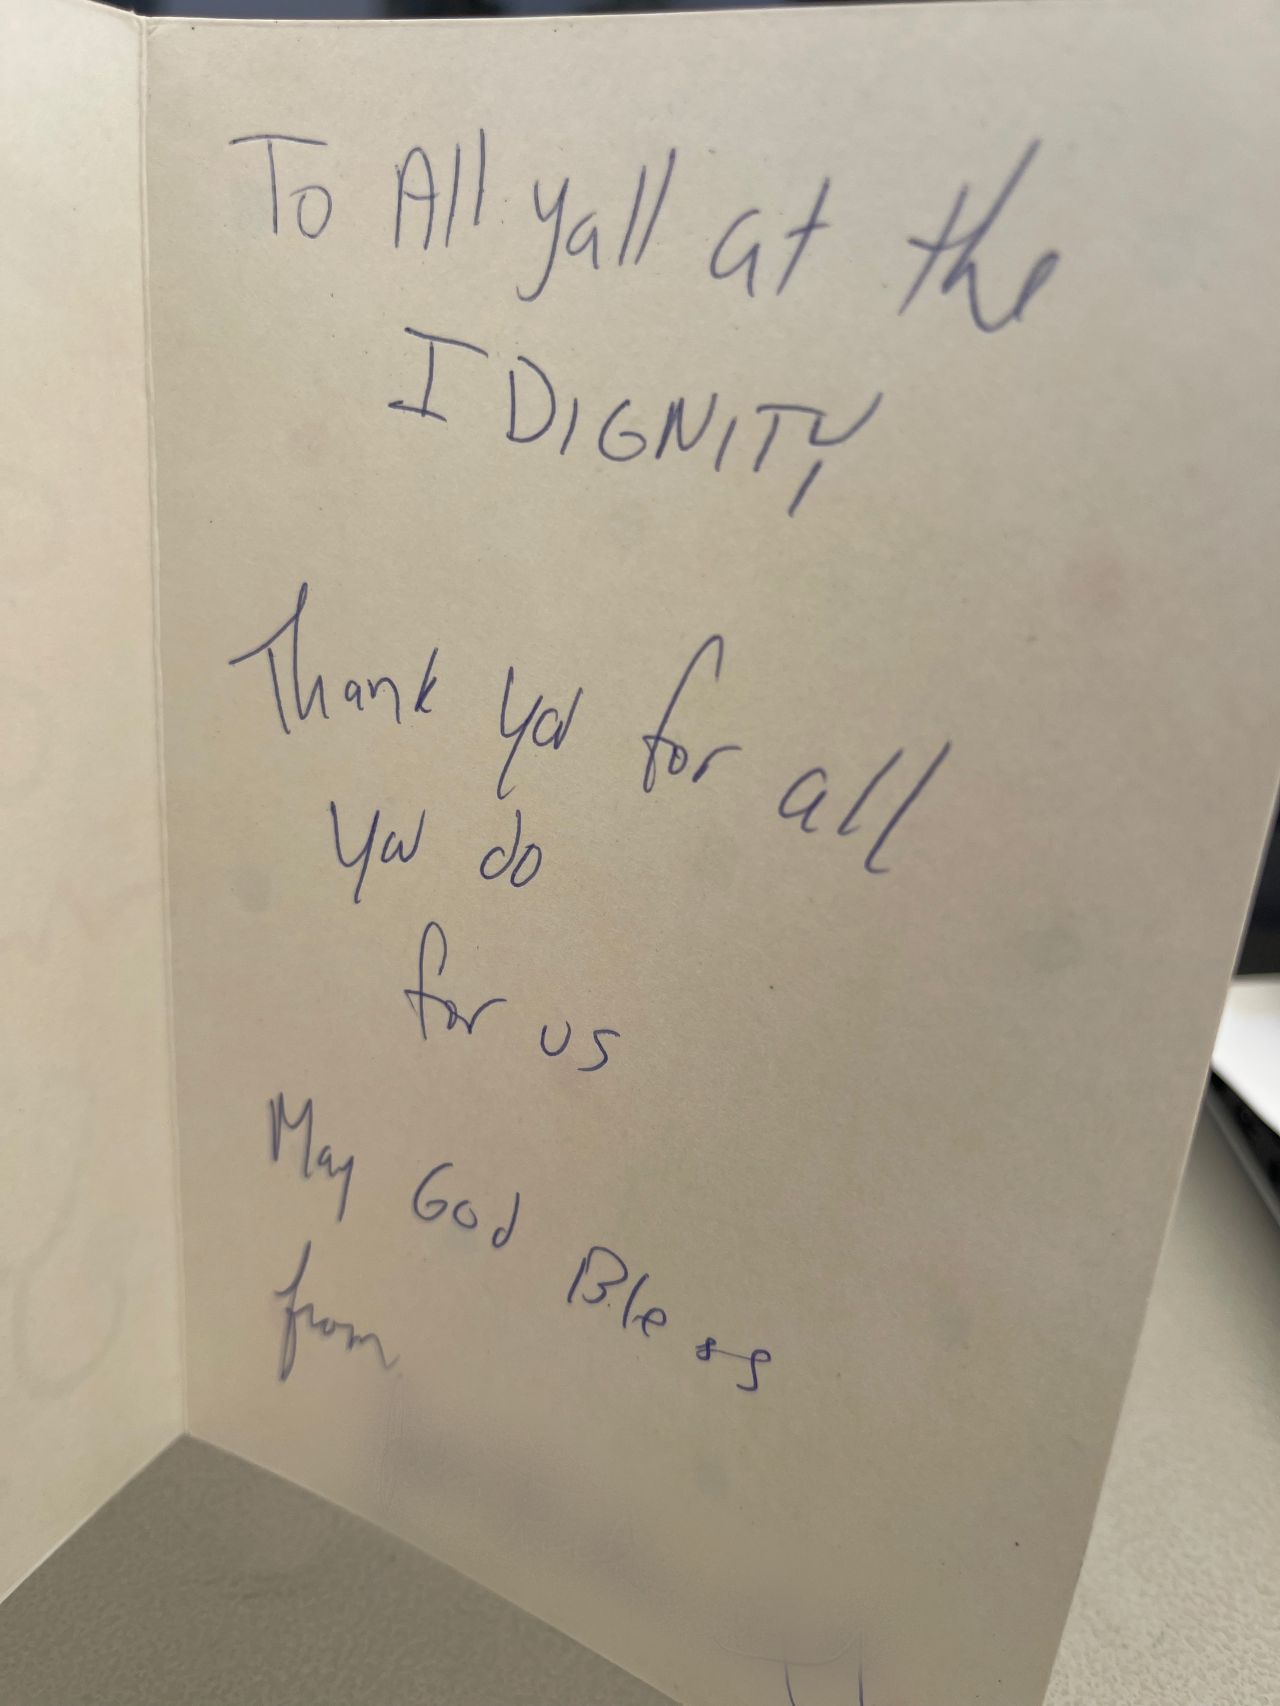 To All yall at the
I DIGNITY
Thank you for all
you do
for us
May God Bless
from